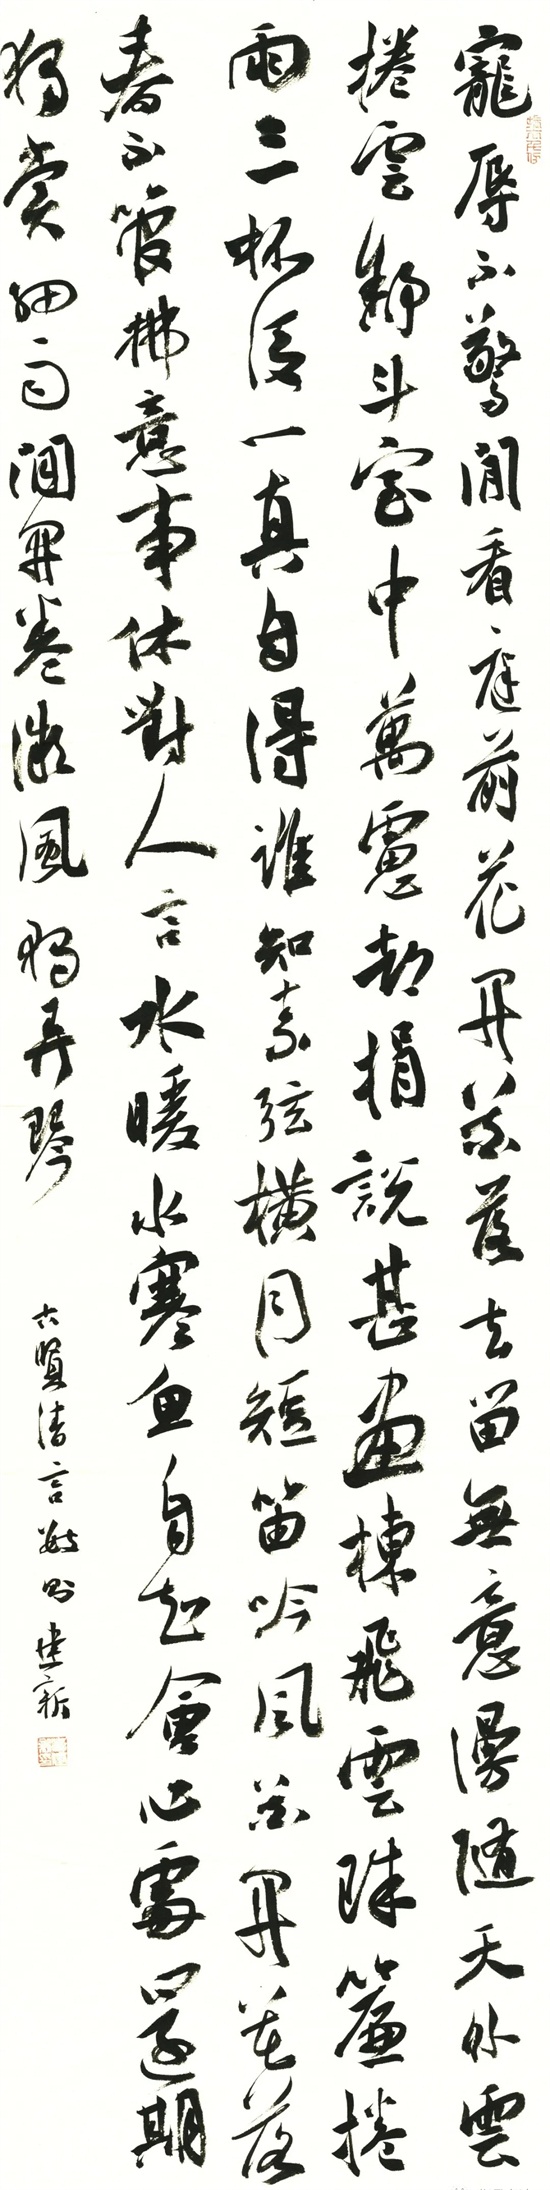 寵辱不驚閒看庭前花開花落去留無意漫隨天外雲
捲雲舒斗室中萬慮都捐說甚畫棟飛雲珠簾捲
雨三杯後一真自得誰知素弦橫月短笛吟風花開花落
春不管拂意事休對人言水暖水寒魚自知會心處還期
獨賞細雨閒開卷微風獨弄琴
古賢清言數則建新